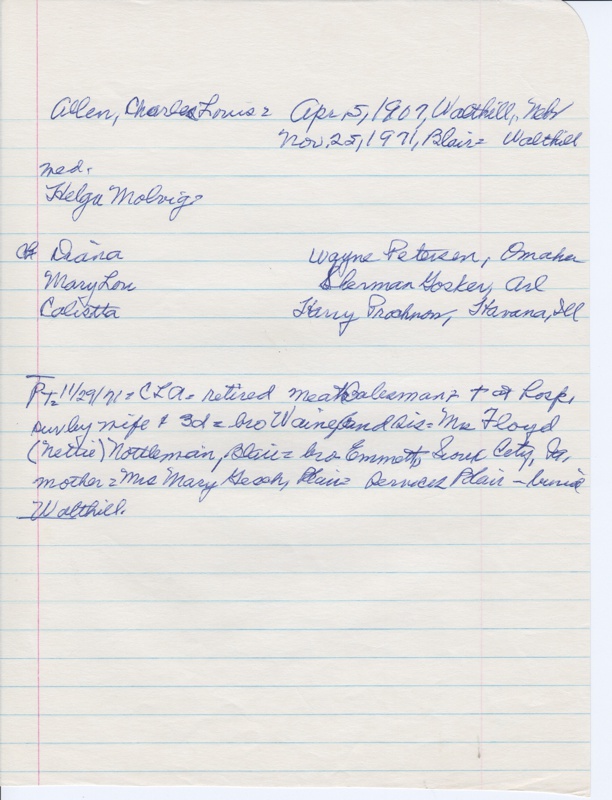 Allen, Charles Louis = Apr. 5, 1907, Walthill, Neb
Nov. 25, 1971, Blair = Walthill
med.
Helga Molvig =
ch Diana Wayne Petersen, Omaha
Mary Lou Sherman Gosker, Arl
Calistta Harry Prochnow, Havana, Ill
PT 11/29/71 = CLA = retired meat salesman = + at hosp.
surv by wife & 3d = bro Waine and sis = Mrs Floyd
("Nettie") Nottleman, Blair = bro Emmett, Sioux City, Ia,
mother = Mrs Mary Blair = services Blair - burial
Walthill.